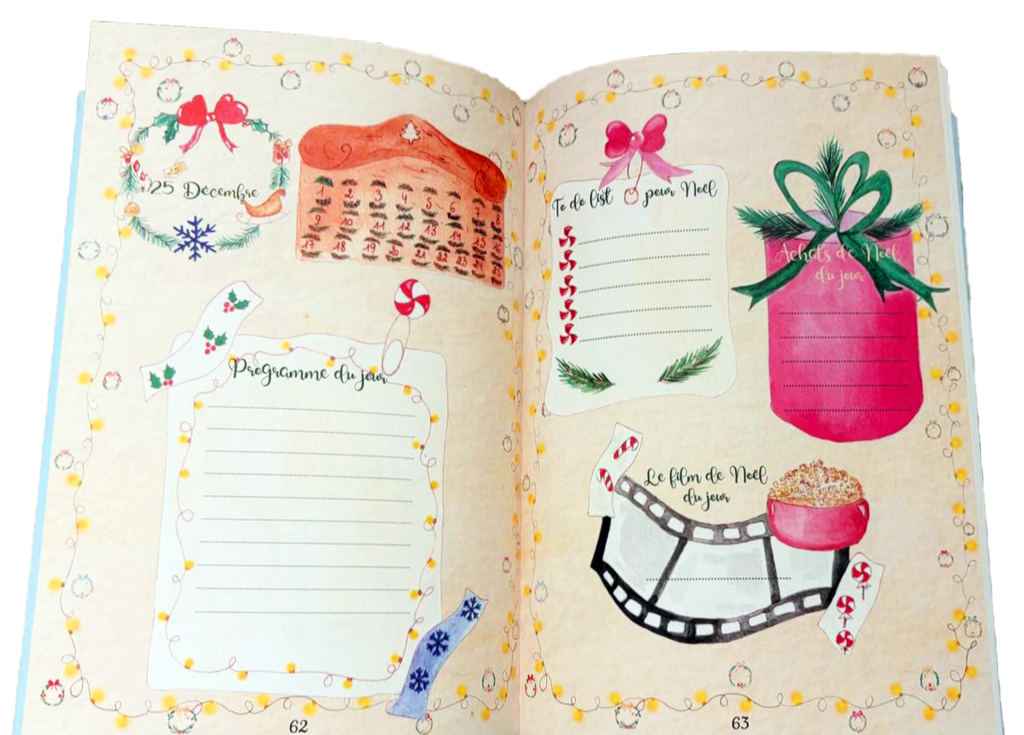 25
25 Décembre
1 2 3 4 5 6 7 8
9 10 11 12 13 14 15 16
17 18 19 20 21 22 23 24
Programme du jour
62
To do list pour Noël
Achats de Noël
du jour
Le film de Noël
du jour
63